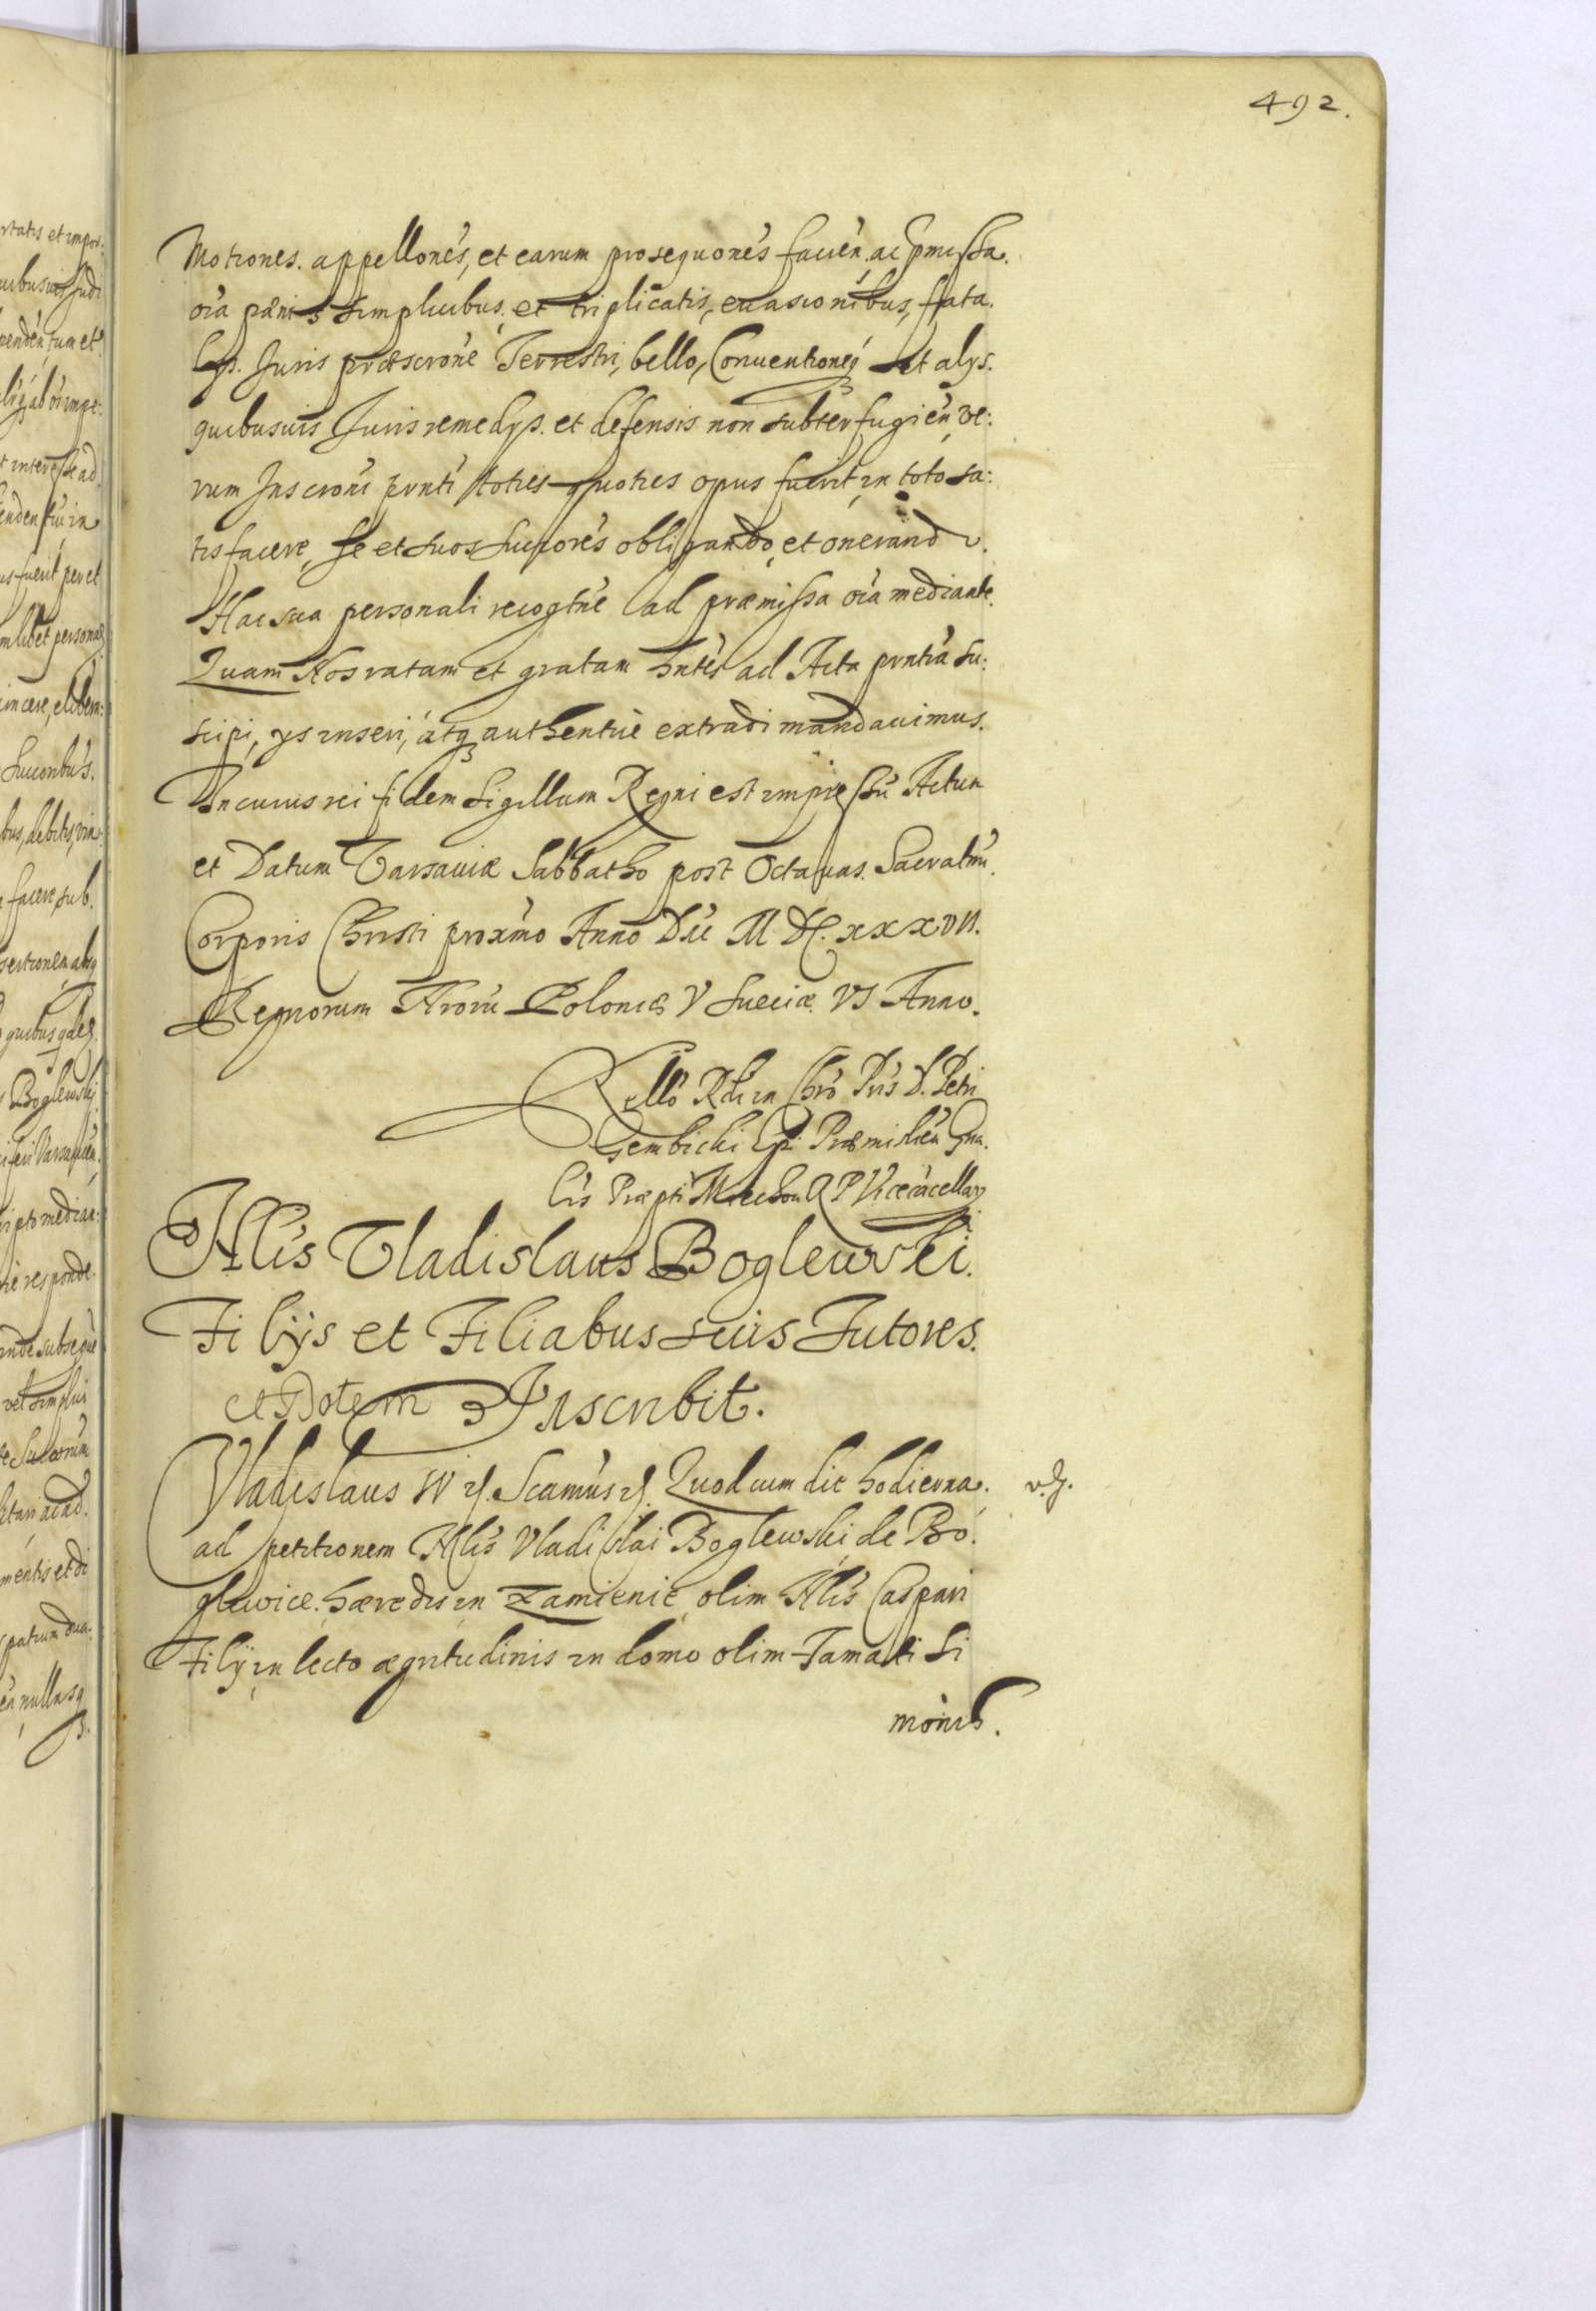 492.
Motiones. appellones, et earum prosequones facien. ac pmissa.
oia pænis simplicibus, et triplicatis, euasionibus, fata.
lys. Iuris præscrone Terrestri, bello, Conuentioneq et alys.
quibusuis Iuris remedys. et defensis non subterfugien, ve:
rum Inscroni pnti toties quoties opus fuerit in toto sa:
tisfacere, se et suos succores obligando, et onerando.
Hac sua personali recogtne ad præmissa oia mediante.
Quam Nos ratam et gratam hntes ad Acta pntia su:
scipi, ys inseri, atq authentice extradi mandauimus.
In cuius rei fidem Sigillum Regni est impressu Actum
et Datum Varsauiæ Sabbatho post Octauas. Sacratmi.
Corporis Christi proximo Anno Dni M DC. xxxvii.
Regnorum Nroru Poloniæ V Sueciæ VI Anno.
Rello Rdi in Chro Pris D. Petri
Gembicki Epi Præmislien Gna.
lis Præpti Miechou R P Vicecacellary
Nlis Vladislaus Boglewski.
Filijs et Filiabus suis Tutores.
et Dotem Inscribit.
Vladislaus IV rf. Scamus rf. Quod cum die hodierna. v. g.
ad petitionem Nlis Vladislai Boglewski de Bo.
glewice. hæredis in Zamienie, olim Nlis Caspari
Filij in lecto ægritudinis in domo olim Famati Si
monis.